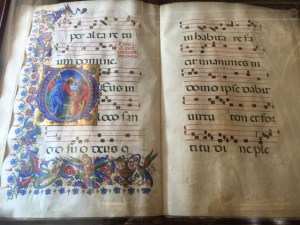 por alta re tu
um domine.
Deus in
loco san
cto suo deus q
inhabita re fa
cit unanimes in
domo ipse dabit
virtu tem et for
titu di nē ple